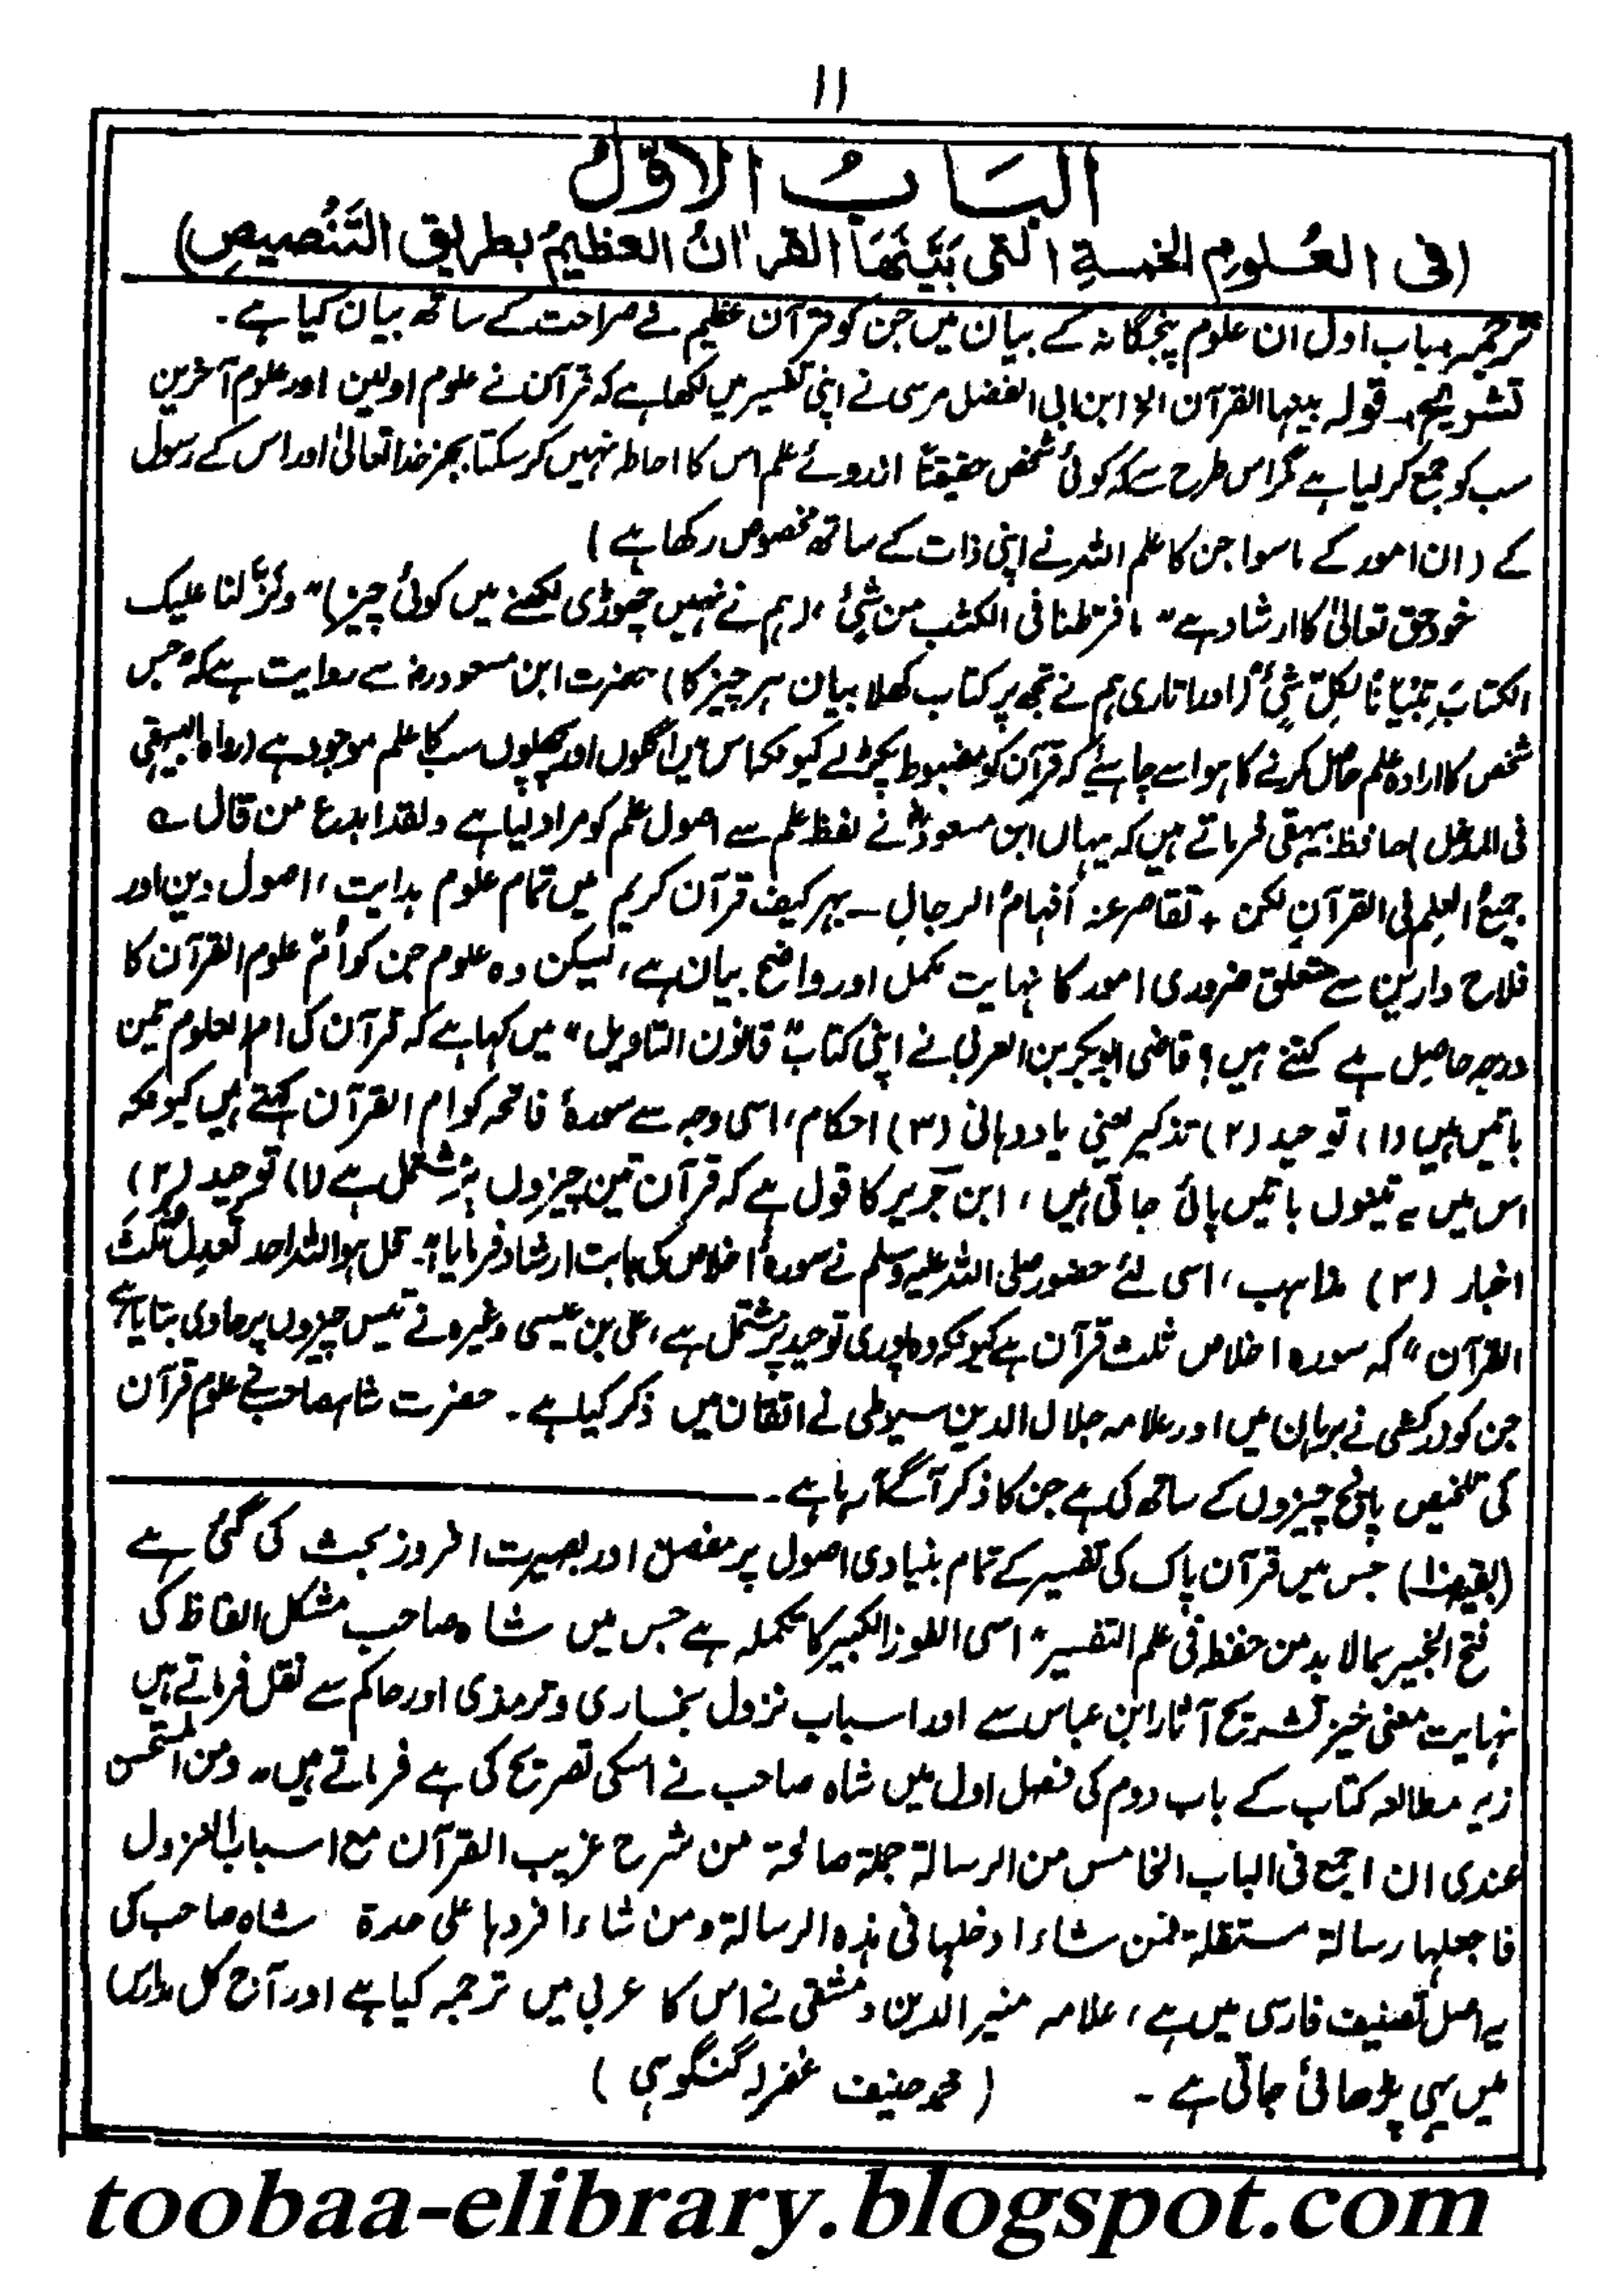 ۱۱
البَابُ الاَوّلُ
(فی العُلومِ الخمسةِ التی بَیَّنَھَا القراٰنُ العظیمُ بطریق التَنْصیصِ)
ترجمہ، باب اول ان علوم پنجگانہ کے بیان میں جن کو قرآن عظیم نے صراحت کے ساتھ بیان کیا ہے۔
تشریح، قولہ بینہا القرآن الخ ابن ابی الفضل مرسی نے اپنی تفسیر میں لکھا ہے کہ قرآن نے علوم اولین اور علوم آخرین
سب کو جمع کر لیا ہے مگر اس طرح سے کہ کوئی شخص حقیقتاً ازروئے علم اس کا احاطہ نہیں کر سکتا بجز خدا تعالیٰ اور اس کے رسول
کے (ان امور کے ماسوا جن کا علم اللہ نے اپنی ذات کے ساتھ مخصوص رکھا ہے)
خود حق تعالیٰ کا ارشاد ہے "ما فرّطنا فی الکتٰب من شیٔ" (ہم نے نہیں چھوڑی لکھنے میں کوئی چیز) "ونزّلنا علیک
الکتابَ تِبْیَاناً لکلِّ شیٔ" (اور اتاری ہم نے تجھ پر کتاب کھلا بیان ہر چیز کا) حضرت ابن مسعود رض سے روایت ہے کہ "جس
شخص کا ارادہ علم حاصل کرنے کا ہو اسے چاہئے کہ قرآن کو مضبوط پکڑ لے کیونکہ اس میں اگلوں اور پچھلوں سب کا علم موجود ہے (رواہ البیہقی
فی المدخل) حافظ بیہقی فرماتے ہیں کہ یہاں ابن مسعودؓ نے لفظ علم سے اصول علم کو مراد لیا ہے ولقد ابدع من قال ؎
جمیعُ العِلمِ فی القرآنِ لکن + تقاصر عنہ اَفہامُ الرجالِ ــ بہر کیف قرآن کریم میں تمام علوم ہدایت، اصول دین اور
فلاح دارین سے متعلق ضروری امور کا نہایت مکمل اور واضح بیان ہے، لیکن وہ علوم جن کو اُمّ علوم القرآن کا
درجہ حاصل ہے کتنے ہیں؟ قاضی ابوبکر بن العربی نے اپنی کتاب "قانون التاویل" میں کہا ہے کہ قرآن کی ام العلوم تین
باتیں ہیں (۱) توحید (۲) تذکیر یعنی یاد دہانی (۳) احکام، اسی وجہ سے سورۂ فاتحہ کو ام القرآن کہتے ہیں کیونکہ
اس میں یہ تینوں باتیں پائی جاتی ہیں، ابن جریر کا قول ہے کہ قرآن تین چیزوں پر مشتمل ہے (۱) توحید (۲)
اخبار (۳) مذاہب، اسی لئے حضور صلی اللہ علیہ وسلم نے سورۂ اخلاص کی بابت ارشاد فرمایا "قل ہو اللہ احد تعدل ثلث
القرآن" کہ سورہ اخلاص ثلث قرآن ہے کیونکہ وہ پوری توحید پر مشتمل ہے، علی بن عیسی وغیرہ نے تیس چیزوں پر حاوی بتایا ہے
جن کو زرکشی نے برہان میں اور علامہ جلال الدین سیوطی نے اتقان میں ذکر کیا ہے۔ حضرت شاہ صاحب نے علوم قرآن
کی تلخیص پانچ چیزوں کے ساتھ کی ہے جن کا ذکر آگے آ رہا ہے۔
(بقیہ) جس میں قرآن پاک کی تفسیر کے تمام بنیادی اصول پر مفصل اور بصیرت افروز بحث کی گئی ہے
فتح الخبیر بمالا بد من حفظہ فی علم التفسیر" اسی الفوز الکبیر کا تکملہ ہے جس میں شاہ صاحب مشکل الفاظ کی
نہایت معنی خیز تشریح آثار ابن عباس سے اور اسباب نزول بخاری و ترمذی اور حاکم سے نقل فرماتے ہیں
زیر مطالعہ کتاب کے باب دوم کی فصل اول میں شاہ صاحب نے اسکی تصریح کی ہے فرماتے ہیں "ومن المستحسن
عندی ان اجمع فی الباب الخامس من الرسالۃ جملۃ صالحۃ من شرح غریب القرآن مع اسباب النزول
فاجعلہا رسالۃ مستقلۃ فمن شاء ادخلہا فی ہذہ الرسالۃ ومن شاء افردہا علی حدۃ شاہ صاحب کی
یہ اصل تصنیف فارسی میں ہے، علامہ منیر الدین دمشقی نے اس کا عربی میں ترجمہ کیا ہے اور آج کل مدارس
میں یہی پڑھائی جاتی ہے۔ (محمد حنیف غفرلہ گنگوہی)
toobaa-elibrary.blogspot.com